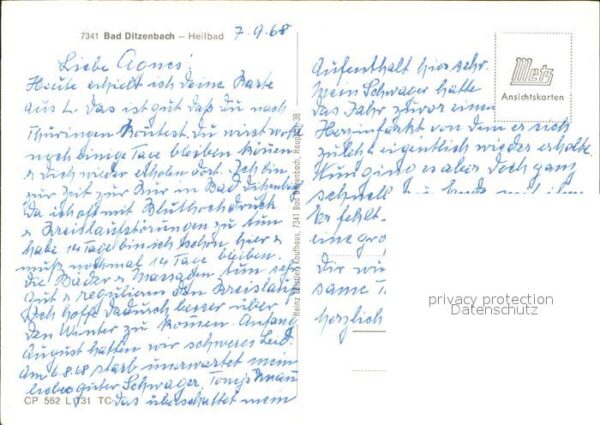 7341 Bad Ditzenbach – Heilbad
7.9.68
Liebe Agnes!
Heute erhielt ich deine Karte
aus L. Das ist gut daß du nach
Thüringen konntest. Du wirst wohl
noch einige Tage bleiben können
& dich wieder erholen dort. Ich bin
zur Zeit zur Kur in Bad Ditzenbach
Da ich oft mit Bluthochdruck
& Kreislaufstörungen zu tun
habe 14 Tage bin ich schon hier &
muß nochmal 14 Tage bleiben.
Die Bäder & Massagen tun sehr
gut & regulieren den Kreislauf
Ich hoffe dadurch besser über
den Winter zu kommen. Anfang
August hatten wir schweres Leid.
Am 6.8.68 starb unerwartet mein
lieber guter Schwager,
Das überschattet mein
CP 562 L 731 TC
Kaufhaus, 7341 Bad Ditzenbach, Hauptstr. 38
Aufenthalt hier sehr.
Mein Schwager hatte
das Jahr zuvor einen
Herzinfarkt von dem er sich
zuletzt eigentlich wieder erholte.
Nun ging es aber doch ganz
schnell zu Ende mit ihm
Er fehlt
eine gro
Dir wü
same T
herzlich
Metz
Ansichtskarten
privacy protection
Datenschutz